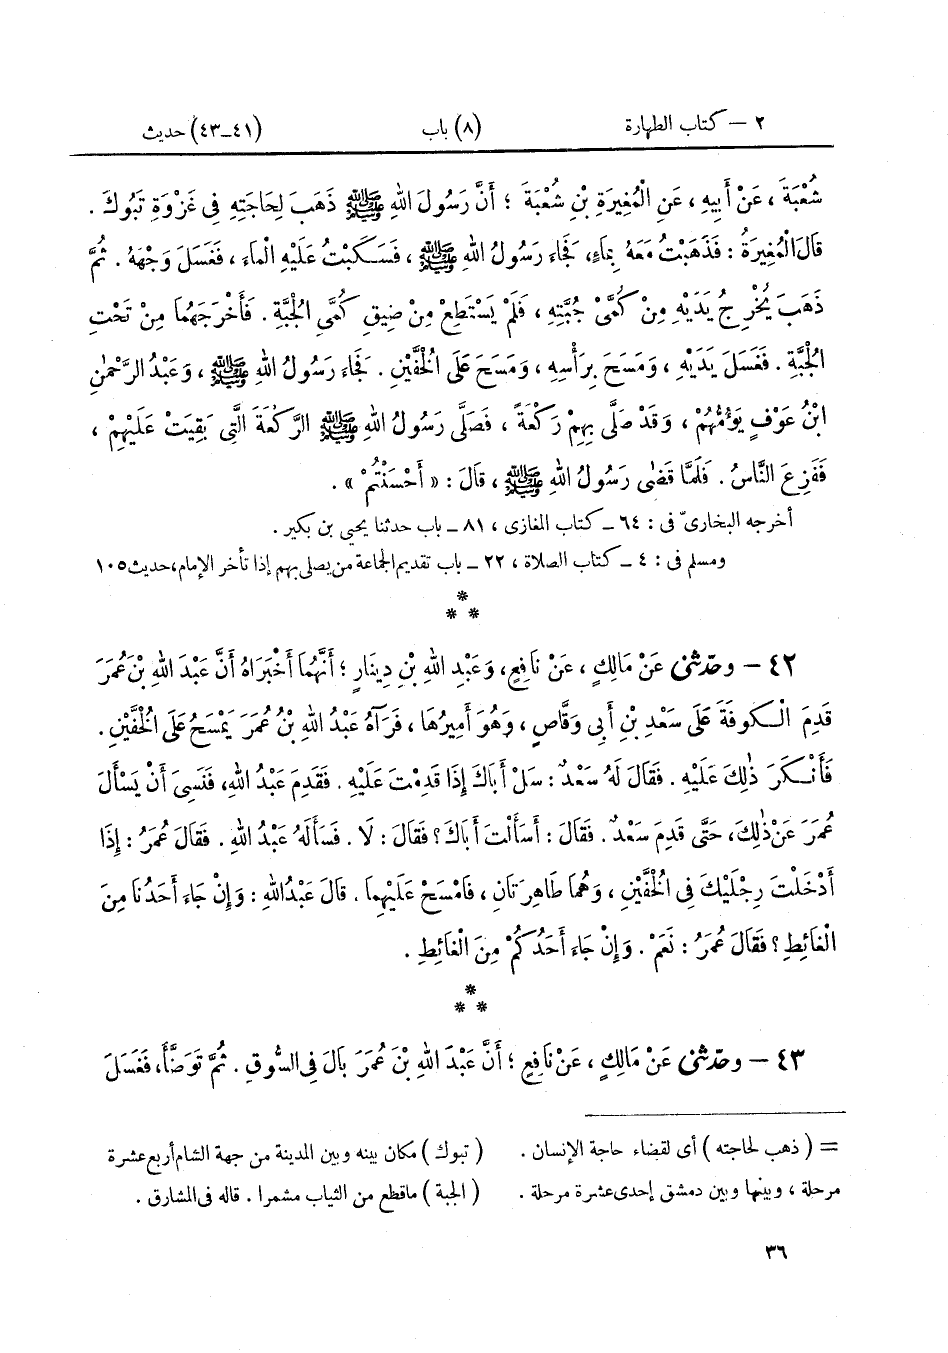 ٢ — كتاب الطهارة (٨) باب (٤١ـ٤٣) حديث
شُعْبَةَ ، عَنْ أَبِيهِ ، عَنِ الْمُغِيرَةِ بْنِ شُعْبَةَ ؛ أَنَّ رَسُولَ اللهِ ﷺ ذَهَبَ لِحَاجَتِهِ فِي غَزْوَةِ تَبُوكَ .
قَالَ الْمُغِيرَةُ : فَذَهَبْتُ مَعَهُ بِمَاءٍ ، فَجَاءَ رَسُولُ اللهِ ﷺ ، فَسَكَبْتُ عَلَيْهِ الْمَاءَ ، فَغَسَلَ وَجْهَهُ . ثُمَّ
ذَهَبَ يُخْرِجُ يَدَيْهِ مِنْ كُمَّىْ جُبَّتِهِ ، فَلَمْ يَسْتَطِعْ مِنْ ضِيقِ كُمَّىِ الْجُبَّةِ . فَأَخْرَجَهُمَا مِنْ تَحْتِ
الْجُبَّةِ . فَغَسَلَ يَدَيْهِ ، وَمَسَحَ بِرَأْسِهِ ، وَمَسَحَ عَلَى الْخُفَّيْنِ . فَجَاءَ رَسُولُ اللهِ ﷺ ، وَعَبْدُ الرَّحْمٰنِ
ابْنُ عَوْفٍ يَؤُمُّهُمْ ، وَقَدْ صَلَّى بِهِمْ رَكْعَةً ، فَصَلَّى رَسُولُ اللهِ ﷺ الرَّكْعَةَ الَّتِي بَقِيَتْ عَلَيْهِمْ ،
فَفَزِعَ النَّاسُ . فَلَمَّا قَضٰى رَسُولُ اللهِ ﷺ ، قَالَ : « أَحْسَنْتُمْ » .
أخرجه البخارىّ فى : ٦٤ ـ كتاب المغازى ، ٨١ ـ باب حدثنا يحيى بن بكير .
ومسلم فى : ٤ ـ كتاب الصلاة ، ٢٢ ـ باب تقديم الجماعة من يصلى بهم إذا تأخر الإمام، حديث ١٠٥
*
* *
٤٢ — وحدّثنى عَنْ مَالِكٍ ، عَنْ نَافِعٍ، وَعَبْدِ اللهِ بْنِ دِينَارٍ ؛ أَنَّهُمَا أَخْبَرَاهُ أَنَّ عَبْدَ اللهِ بْنَ عُمَرَ
قَدِمَ الْكُوفَةَ عَلَى سَعْدِ بْنِ أَبِى وَقَّاصٍ ، وَهُوَ أَمِيرُهَا ، فَرَآهُ عَبْدُ اللهِ بْنُ عُمَرَ يَمْسَحُ عَلَى الْخُفَّيْنِ .
فَأَنْكَرَ ذٰلِكَ عَلَيْهِ . فَقَالَ لَهُ سَعْدٌ : سَلْ أَبَاكَ إِذَا قَدِمْتَ عَلَيْهِ . فَقَدِمَ عَبْدُ اللهِ، فَنَسِىَ أَنْ يَسْأَلَ
عُمَرَ عَنْ ذٰلِكَ، حَتَّى قَدِمَ سَعْدٌ . فَقَالَ : أَسَأَلْتَ أَبَاكَ؟ فَقَالَ : لَا . فَسَأَلَهُ عَبْدُ اللهِ . فَقَالَ عُمَرُ : إِذَا
أَدْخَلْتَ رِجْلَيْكَ فِى الْخُفَّيْنِ ، وَهُمَا طَاهِرَتَانِ ، فَامْسَحْ عَلَيْهِمَا . قَالَ عَبْدُ اللهِ : وَإِنْ جَاءَ أَحَدُنَا مِنَ
الْغَائِطِ ؟ فَقَالَ عُمَرُ : نَعَمْ . وَإِنْ جَاءَ أَحَدُكُمْ مِنَ الْغَائِطِ .
*
* *
٤٣ — وحدّثنى عَنْ مَالِكٍ ، عَنْ نَافِعٍ ؛ أَنَّ عَبْدَ اللهِ بْنَ عُمَرَ بَالَ فِى السُّوقِ . ثُمَّ تَوَضَّأَ، فَغَسَلَ
= ( ذهب لحاجته ) أى لقضاء حاجة الإنسان . ( تبوك ) مكان بينه وبين المدينة من جهة الشام أربع عشرة
مرحلة ، وبينها وبين دمشق إحدى عشرة مرحلة . ( الجبة ) ماقطع من الثياب مشمرا . قاله فى المشارق .
٣٦